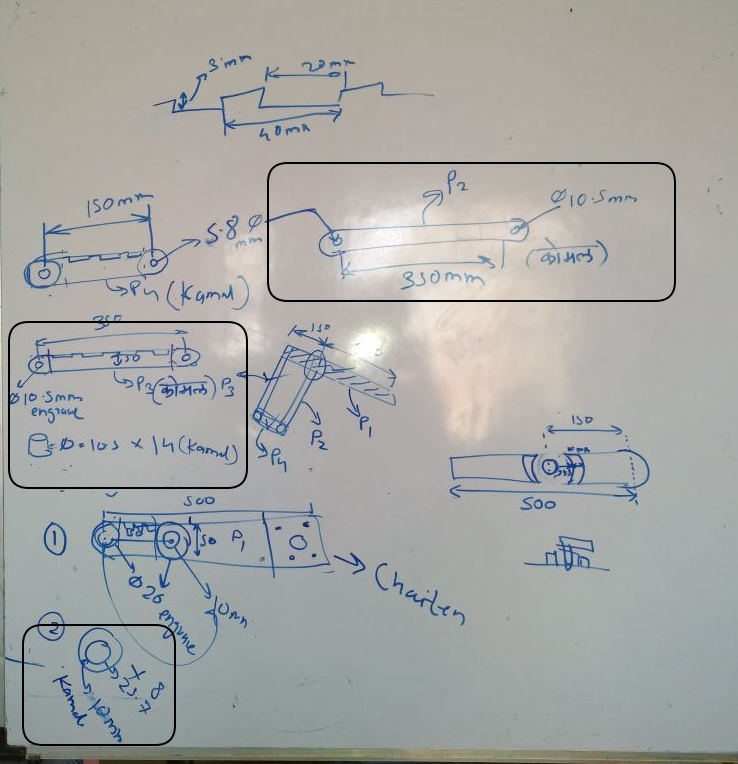 3mm
20mm
40mm
150mm
5.8 Ø
mm
P4 (Kamal)
P2
Ø10.5mm
350mm
(कोमल)
350
P3 (कोमल)
P3
Ø10.5mm
engrave
Ø=10.5 x 14 (Kamal)
150
P1
P2
P4
150
500
500
①
50
P1
Ø 26
engrave
10mm
②
x 8
23.7
10mm
Kamal